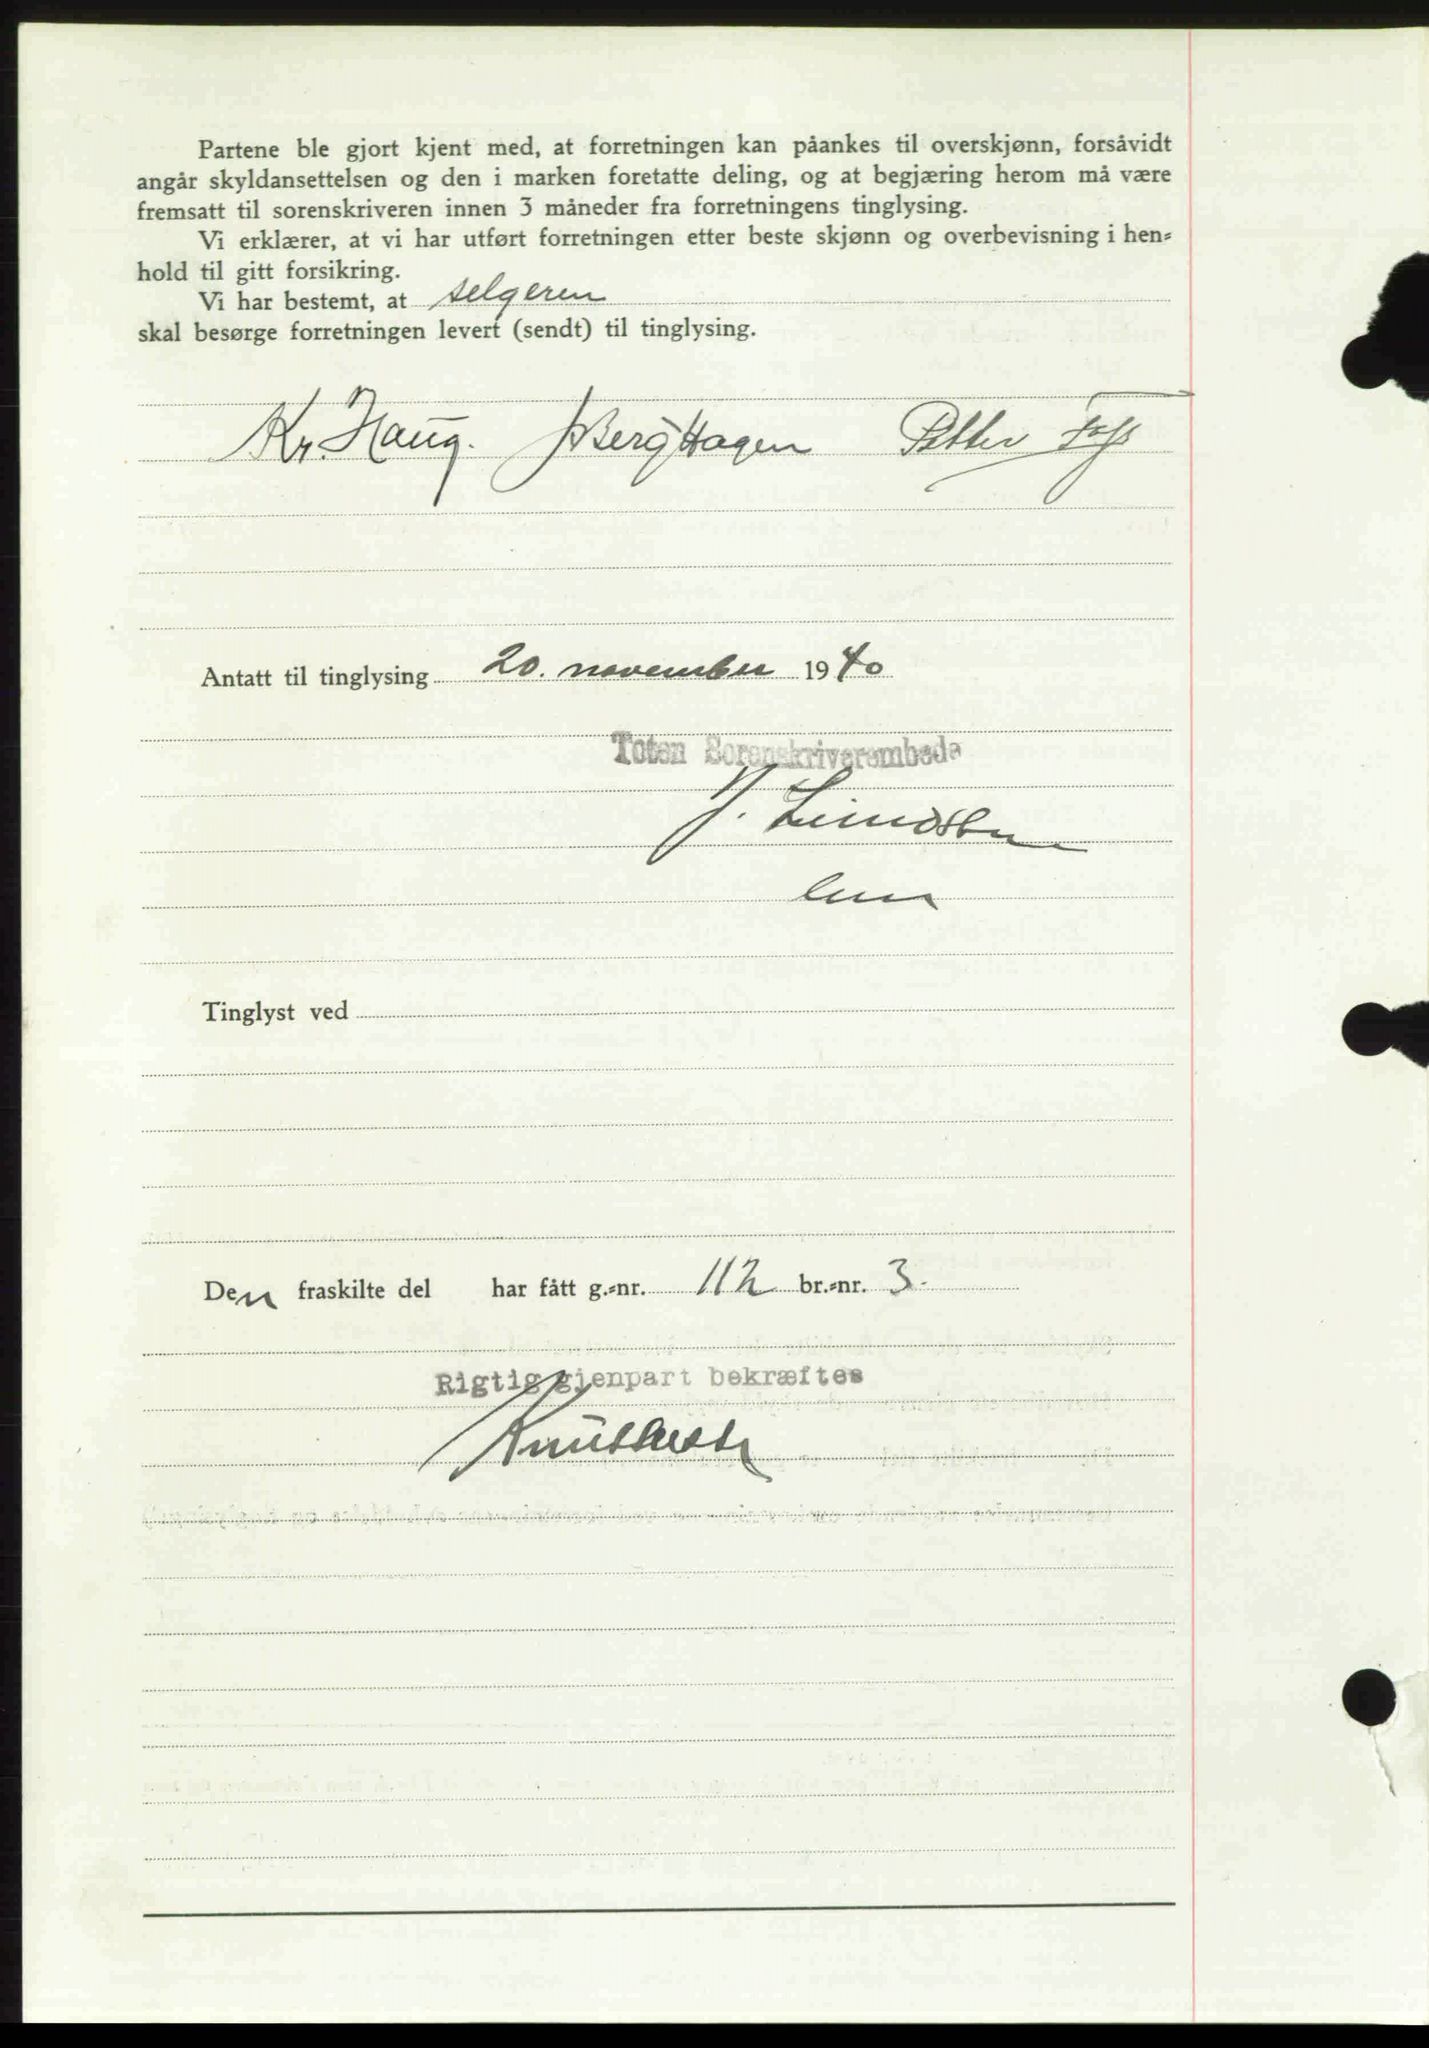 Partene ble gjort kjent med, at forretningen kan påankes til overskjønn, forsåvidt
angår skyldansettelsen og den i marken foretatte deling, og at begjæring herom må være
fremsatt til sorenskriveren innen 3 måneder fra forretningens tinglysing.
Vi erklærer, at vi har utført forretningen etter beste skjønn og overbevisning i hen-
hold til gitt forsikring.
Vi har bestemt, at selgeren
skal besørge forretningen levert (sendt) til tinglysing.
Kr. Haug. J Berg Hagen Petter
Antatt til tinglysing 20. november 1940
Toten Sorenskriverembede
Tinglyst ved
Den fraskilte del har fått g.-nr. 112 br.-nr. 3.
Rigtig gjenpart bekræftes